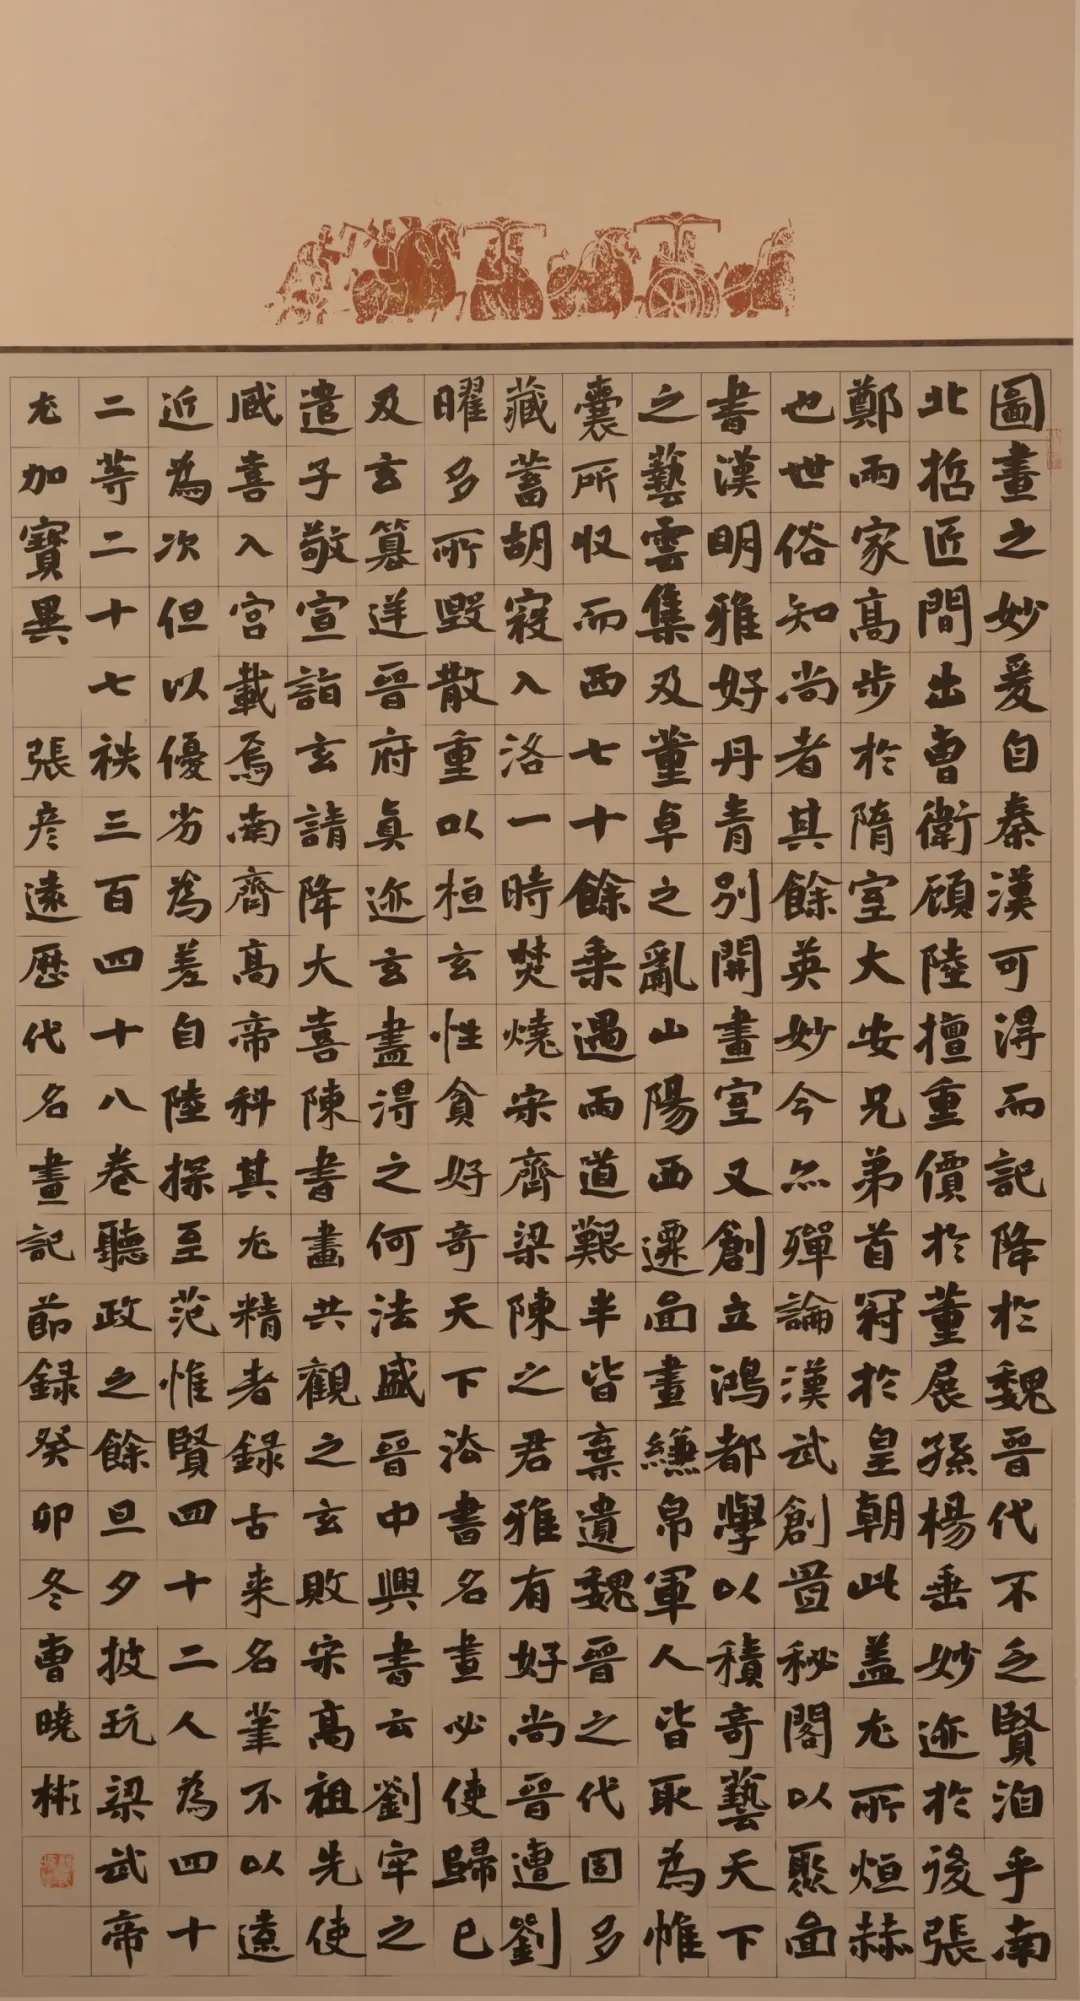 圖畫之妙爰自秦漢可得而記降於魏晉代不乏賢洎乎南
北哲匠間出曹衛顧陸擅重價於董展孫楊垂妙迹於後張
鄭兩家高步於隋室大安兄弟首冠於皇朝此蓋尤所烜赫
也世俗知尚者其餘英妙今亦殫論漢武創置秘閣以聚圖
書漢明雅好丹青別開畫室又創立鴻都學以積奇藝天下
之藝雲集及董卓之亂山陽西遷圖畫縑帛軍人皆取為帷
囊所收而西七十餘乘遇雨道艱半皆棄遺魏晉之代固多
藏蓄胡寇入洛一時焚燒宋齊梁陳之君雅有好尚晉遭劉
曜多所毀散重以桓玄性貪好奇天下法書名畫必使歸己
及玄篡逆晉府真迹玄盡得之何法盛晉中興書云劉牢之
遣子敬宣詣玄請降大喜陳書畫共觀之玄敗宋高祖先使
臧喜入宮載焉南齊高帝科其尤精者錄古來名筆不以遠
近為次但以優劣為差自陸探至范惟賢四十二人為四十
二等二十七袟三百四十八卷聽政之餘旦夕披玩梁武帝
尤加寶異 張彥遠歷代名畫記節錄癸卯冬曹曉彬